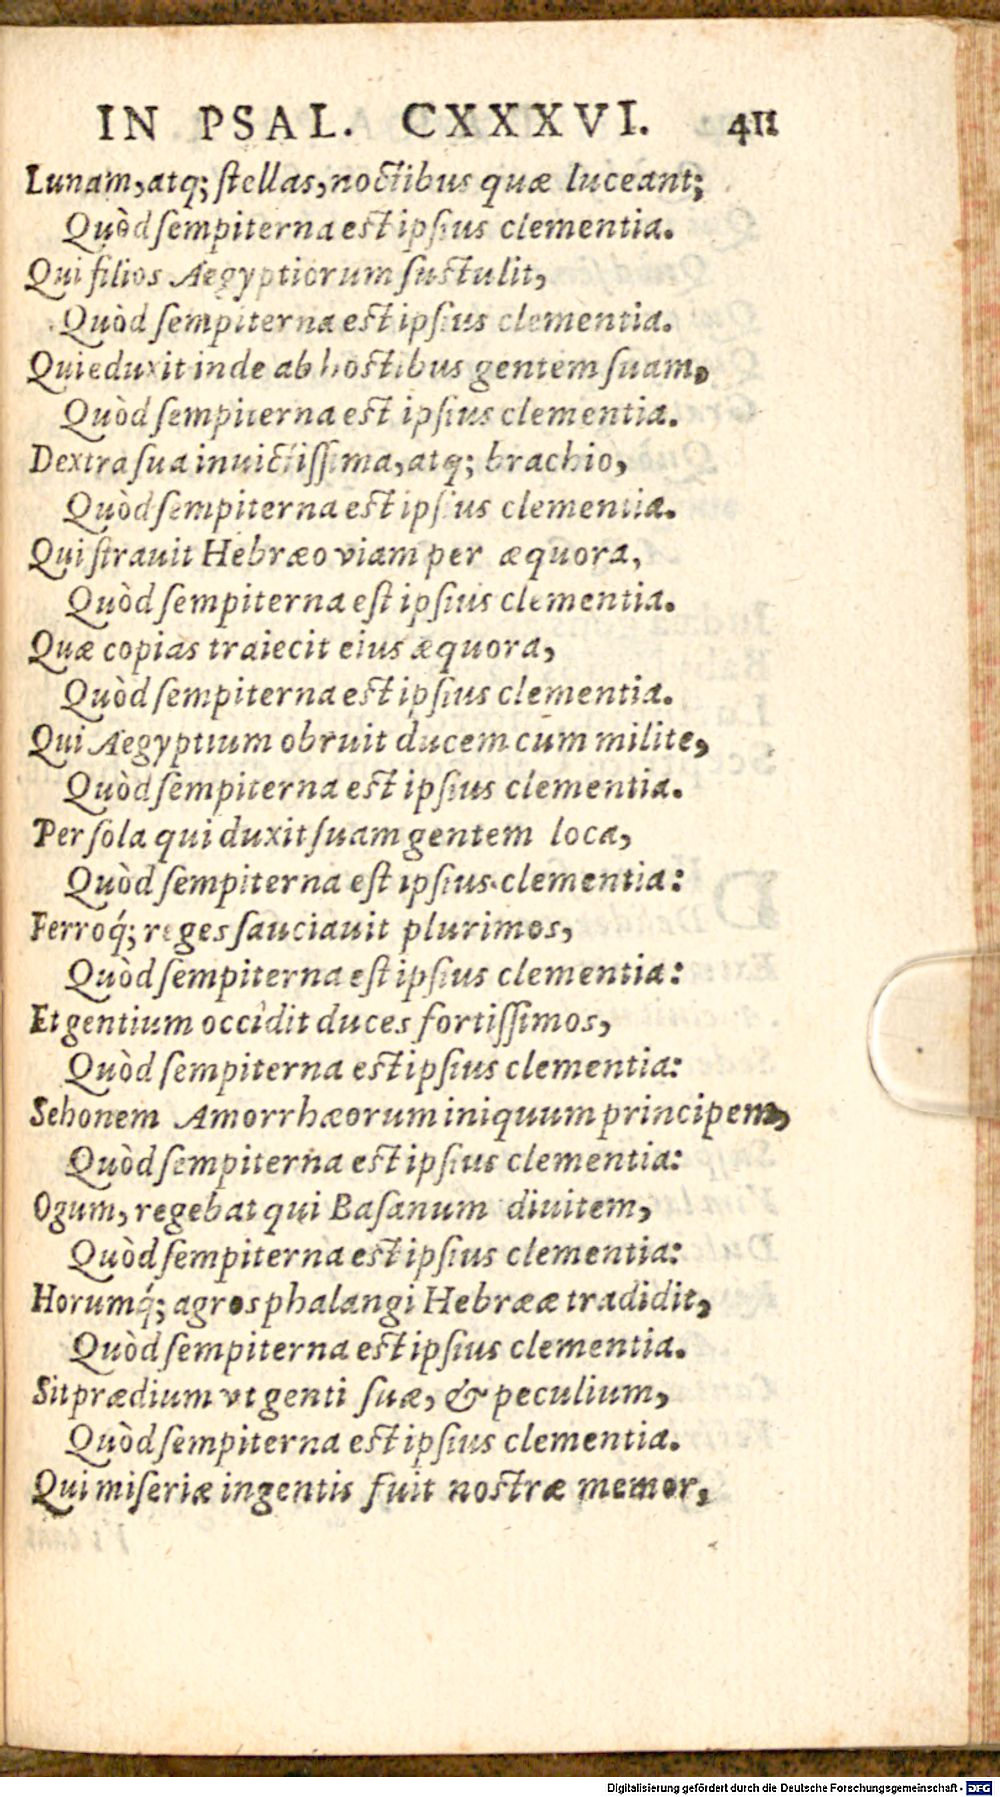 IN PSAL. CXXXVI. 411
Lunam, atq; ſtellas, noctibus quæ luceant;
Quòd ſempiterna eſt ipſius clementia.
Qui filios Aegyptiorum ſuſtulit,
Quòd ſempiterna eſt ipſius clementia.
Qui eduxit inde ab hoſtibus gentem ſuam,
Quòd ſempiterna eſt ipſius clementia.
Dextra ſua inuictiſſima, atq; brachio,
Quòd ſempiterna eſt ipſius clementia.
Qui ſtrauit Hebræo viam per æquora,
Quòd ſempiterna eſt ipſius clementia.
Quæ copias traiecit eius æquora,
Quòd ſempiterna eſt ipſius clementia.
Qui Aegyptium obruit ducem cum milite,
Quòd ſempiterna eſt ipſius clementia.
Per ſola qui duxit ſuam gentem loca,
Quòd ſempiterna eſt ipſius clementia:
Ferroq́; reges ſauciauit plurimos,
Quòd ſempiterna eſt ipſius clementia:
Et gentium occìdit duces fortiſſimos,
Quòd ſempiterna eſt ipſius clementia:
Sehonem Amorrhæorum iniquum principem,
Quòd ſempiterna eſt ipſius clementia:
Ogum, regebat qui Baſanum diuitem,
Quòd ſempiterna eſt ipſius clementia:
Horumq́; agros phalangi Hebrææ tradidit,
Quòd ſempiterna eſt ipſius clementia.
Sit prædium vt genti ſuæ, & peculium,
Quòd ſempiterna eſt ipſius clementia.
Qui miſeriæ ingentis fuit noſtræ memor,
Digitalisierung gefördert durch die Deutsche Forschungsgemeinschaft - DFG